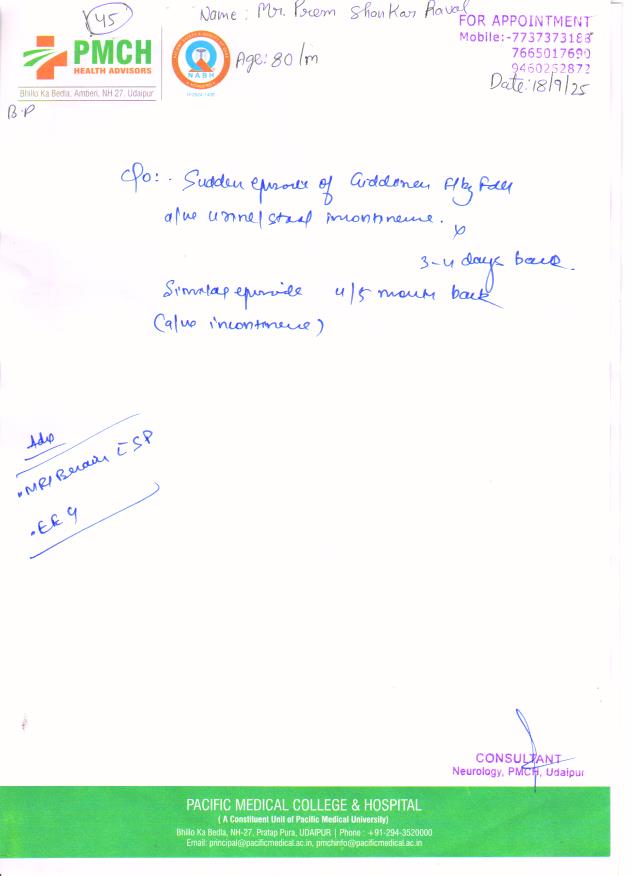 45
Name: Mr. Prem Shankar Raval
FOR APPOINTMENT
Mobile:-7737373188
7665017690
9460252872
PMCH
HEALTH ADVISORS
NABH
Age: 80/m
Date: 18/9/25
Bhillo Ka Bedla, Amberi, NH 27, Udaipur
B.P
C/o: - Sudden episode of Giddiness f/by fall
a/w urine/stool incontinence.
3-4 days back.
Similar episode 4/5 month back
(a/w incontinence)
Adv
• MRI Brain c̄ ESP
• EEG
CONSULTANT
Neurology, PMCH, Udaipur
PACIFIC MEDICAL COLLEGE & HOSPITAL
( A Constituent Unit of Pacific Medical University)
Bhillo Ka Bedla, NH-27, Pratap Pura, UDAIPUR | Phone : +91-294-3520000
Email: principal@pacificmedical.ac.in, pmchinfo@pacificmedical.ac.in